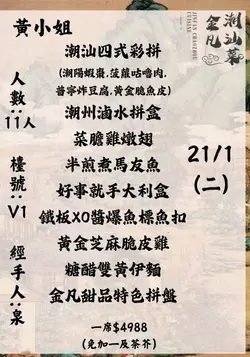 黃小姐
潮汕菜
金凡
JINFAN CHAOZHOU
CUISINE
人數:11人
檯號:V1
經手人:泉
潮汕四式彩拼
(潮陽蝦棗.菠蘿咕嚕肉.
普寧炸豆腐.黃金脆魚皮)
潮州滷水拼盒
菜膽雞燉翅
半煎煮馬友魚
好事就手大利盒
鐵板XO醬爆魚標魚扣
黃金芝麻脆皮雞
糖醋雙黃伊麵
金凡甜品特色拼盤
21/1
(二)
一席$4988
(免加一及茶芥)